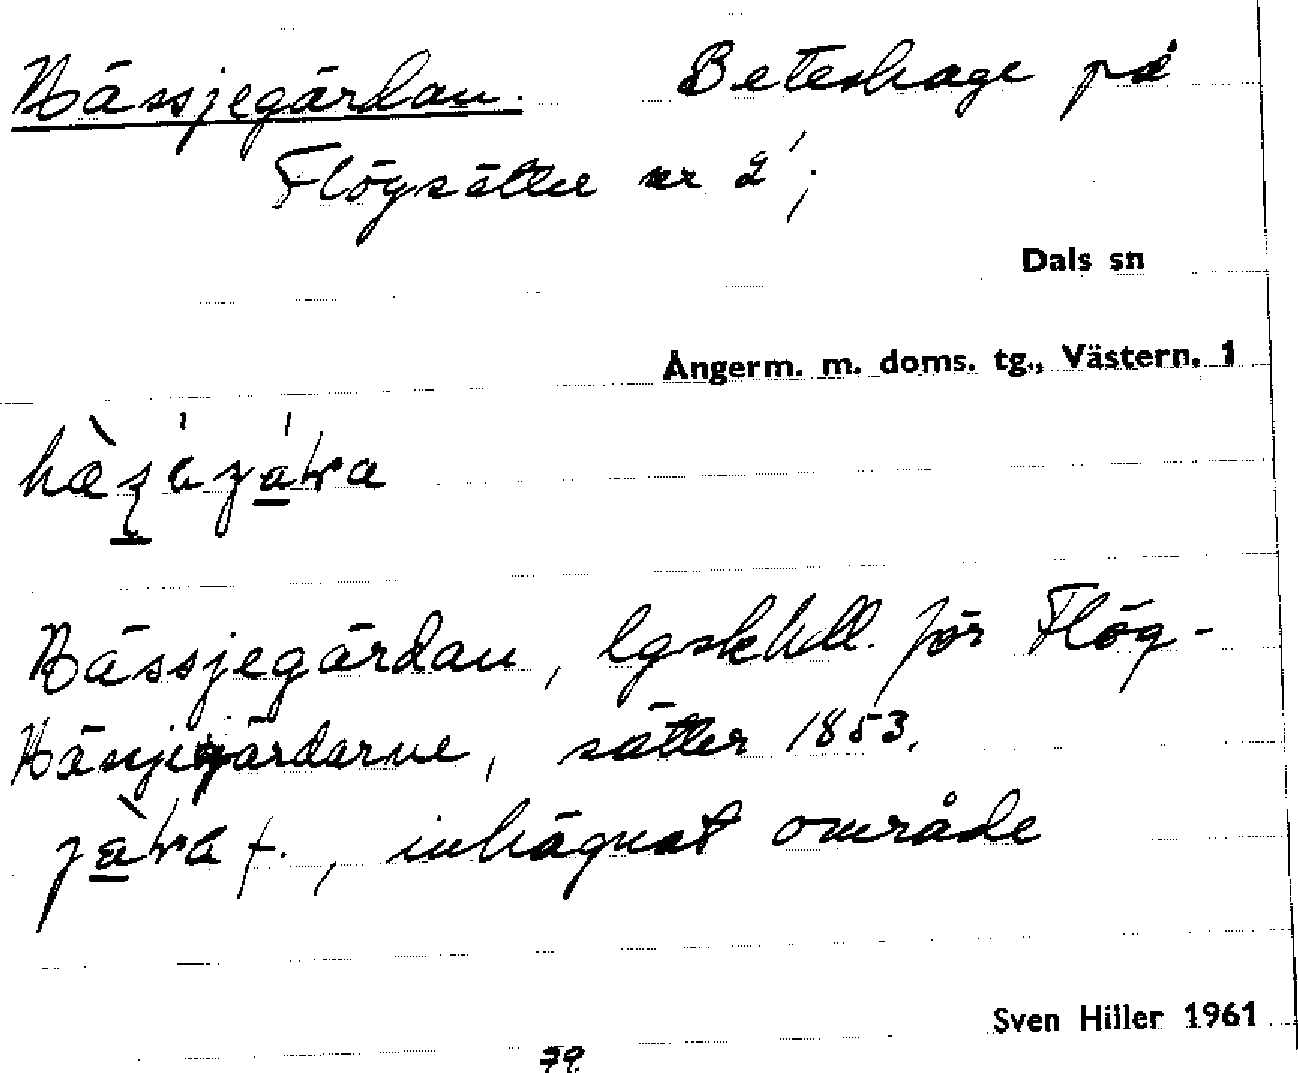 Hässjegärdan. Beteshage på
Flögsätter nr 2¹;
Dals sn
Ångerm. m. doms. tg., Västern. 1
Hässjegärdan, lgskhll. för Flög-
Häsjegärdarne, sätter 1853.
f., inhägnat område
Sven Hiller 1961
79